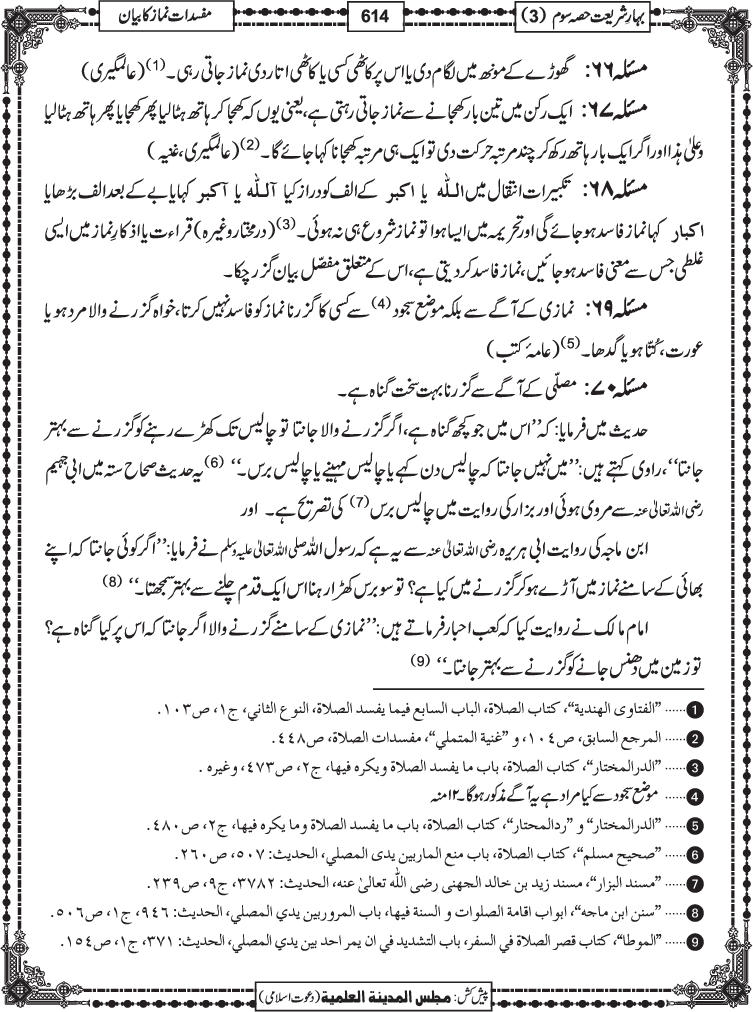 بہارِ شریعت حصہ سوم (3)
614
مفسدات نماز کا بیان
مسئلہ ۶۶: گھوڑے کے مونھ میں لگام دی یا اس پر کاٹھی کسی یا کاٹھی اتار دی نماز جاتی رہی۔(1) (عالمگیری)
مسئلہ ۶۷: ایک رکن میں تین بار کھجانے سے نماز جاتی رہتی ہے، یعنی یوں کہ کھجا کر ہاتھ ہٹا لیا پھر کھجایا پھر ہاتھ ہٹا لیا
وعلیٰ ہذا اور اگر ایک بار ہاتھ رکھ کر چند مرتبہ حرکت دی تو ایک ہی مرتبہ کھجانا کہا جائے گا۔(2) (عالمگیری، غنیہ)
مسئلہ ۶۸: تکبیرات انتقال میں اللہ یا اکبر کے الف کو دراز کیا آللہ یا آکبر کہا یا بے کے بعد الف بڑھایا
اکبار کہا نماز فاسد ہو جائے گی اور تحریمہ میں ایسا ہوا تو نماز شروع ہی نہ ہوئی۔(3) (درمختار وغیرہ) قراءت یا اذکارِ نماز میں ایسی
غلطی جس سے معنی فاسد ہو جائیں، نماز فاسد کر دیتی ہے، اس کے متعلق مفصّل بیان گزر چکا۔
مسئلہ ۶۹: نمازی کے آگے سے بلکہ موضع سجود(4) سے کسی کا گزرنا نماز کو فاسد نہیں کرتا، خواہ گزرنے والا مرد ہو یا
عورت، کُتّا ہو یا گدھا۔(5) (عامۂ کتب)
مسئلہ ۷۰: مصلّی کے آگے سے گزرنا بہت سخت گناہ ہے۔
حدیث میں فرمایا: کہ ’’اس میں جو کچھ گناہ ہے، اگر گزرنے والا جانتا تو چالیس تک کھڑے رہنے کو گزرنے سے بہتر
جانتا‘‘، راوی کہتے ہیں: ’’میں نہیں جانتا کہ چالیس دن کہے یا چالیس مہینے یا چالیس برس۔‘‘ (6) یہ حدیث صحاح ستہ میں ابی جہیم
رضی اللہ تعالیٰ عنہ سے مروی ہوئی اور بزار کی روایت میں چالیس برس(7) کی تصریح ہے۔ اور
ابن ماجہ کی روایت ابی ہریرہ رضی اللہ تعالیٰ عنہ سے یہ ہے کہ رسول اللہ صلی اللہ تعالیٰ علیہ وسلم نے فرمایا: ’’اگر کوئی جانتا کہ اپنے
بھائی کے سامنے نماز میں آڑے ہو کر گزرنے میں کیا ہے؟ تو سو برس کھڑا رہنا اس ایک قدم چلنے سے بہتر سمجھتا۔‘‘ (8)
امام مالک نے روایت کیا کہ کعب احبار فرماتے ہیں: ’’نمازی کے سامنے گزرنے والا اگر جانتا کہ اس پر کیا گناہ ہے؟
تو زمین میں دھنس جانے کو گزرنے سے بہتر جانتا۔‘‘ (9)
1 ...... ”الفتاوی الهندية“، کتاب الصلاة، الباب السابع فيما يفسد الصلاة، النوع الثاني، ج١، ص١٠٣.
2 ...... المرجع السابق، ص١٠٤، و ”غنية المتملي“، مفسدات الصلاة، ص٤٤٨.
3 ...... ”الدرالمختار“، كتاب الصلاة، باب ما يفسد الصلاة ويكره فيها، ج٢، ص٤٧٣، وغيره .
4 ...... موضع سجود سے کیا مراد ہے یہ آگے مذکور ہوگا۔ ۱۲ منہ
5 ...... ”الدرالمختار“ و ”ردالمحتار“، كتاب الصلاة، باب ما يفسد الصلاة وما يكره فيها، ج٢، ص٤٨٠.
6 ...... ”صحيح مسلم“، كتاب الصلاة، باب منع المار بين يدى المصلي، الحديث: ٥٠٧، ص٢٦٠.
7 ...... ”مسند البزار“، مسند زيد بن خالد الجهنى رضى الله تعالىٰ عنه، الحديث: ٣٧٨٢، ج٩، ص٢٣٩.
8 ...... ”سنن ابن ماجه“، ابواب اقامة الصلوات و السنة فيها، باب المروربين يدي المصلي، الحديث: ٩٤٦، ج١، ص٥٠٦.
9 ...... ”الموطا“، كتاب قصر الصلاة في السفر، باب التشديد في ان يمر احد بين يدي المصلي، الحديث: ٣٧١، ج١، ص١٥٤.
پیش کش: مجلس المدینة العلمیة (دعوت اسلامی)